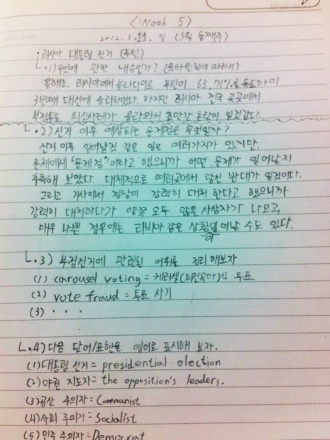 <Week 5>
2012. 3.
·러시아 대통령 선거 (푸틴)
ㄴ.1) 무엇에 관한 내용인가?
올해초, 러시아에서 푸틴이 63.71%로
3번째 대선에 승리하였다. 하지만 러시아 전국 곳곳에서
부정투표 의심사례가 올라와서
ㄴ.2) 선거 이후 예상되는 문제점은 무엇일까?
선거 이후 일어날것 같은 일은 여러가지가 있지만,
문제에서 "문제점"이라고 했으니까 어떤 문제가 일어날지
추측해 보았다. 대체적으로 여러곳에서 당선 반대가 일것이다.
그리고 기사에서 경찰이 강력히 대처 한다고 했으니까
강력히 대처하다가 양쪽 모두 많은 사상자가 나오고,
매우 나쁜 경우에는 리비아 같은 상황이 일어날 수도 있다.
ㄴ.3) 부정선거에 관련된 어휘를 정리해보자
(1) carousel voting = 식 투표
(2) vote fraud = 투표 사기
(3) · · ·
ㄴ.4) 다음 단어/표현을 영어로 표시해 보자.
(1) 대통령 선거 = presidential election
(2) 야권 지도자 = the opposition's leaders.
(3) 공산 주의자 = Communist
(4) 사회 주의자 = Socialist
(5) 민주 주의자 = Democrat